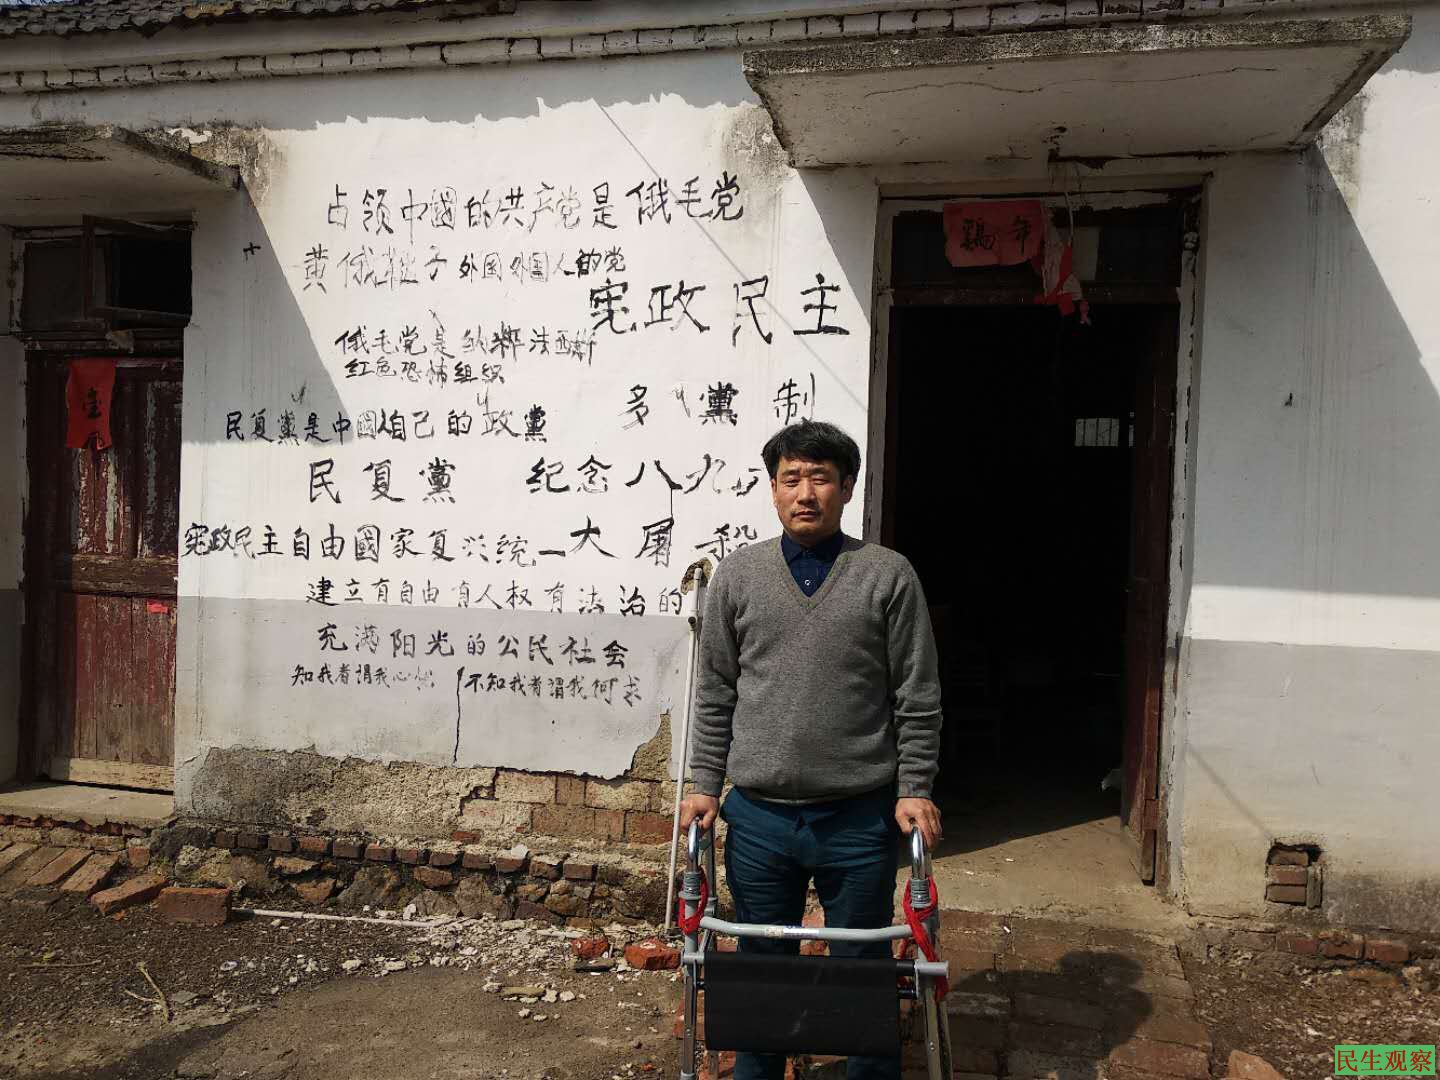 占领中國的共产党是俄毛党
黄俄鞑子外国外国人的党
宪政民主
俄毛党是纳粹法西斯
红色恐怖组织
多党制
民复黨是中國人自己的政黨
民复黨
纪念八九六
大屠殺
宪政民主自由國家复兴统一
建立有自由有人权有法治的
充满阳光的公民社会
知我者谓我心忧
不知我者谓我何求
鷄年
民生观察